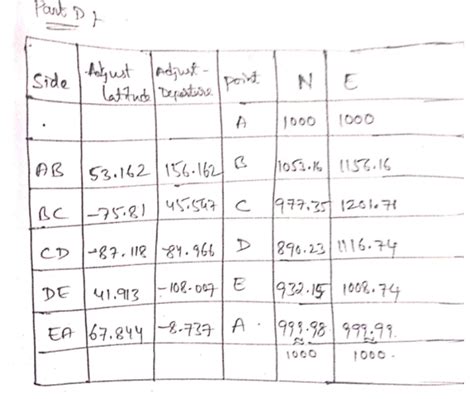 Part D,
Side Adjust latitude Adjust- Departure point N E
. A 1000 1000
AB 53.162 156.162 B 1053.16 1156.16
BC -75.81 45.547 C 977.35 1201.71
CD -87.118 -84.966 D 890.23 1116.74
DE 41.913 -108.007 E 932.15 1008.74
EA 67.844 -8.737 A. 999.98 999.99
≈ ≈
1000 1000.